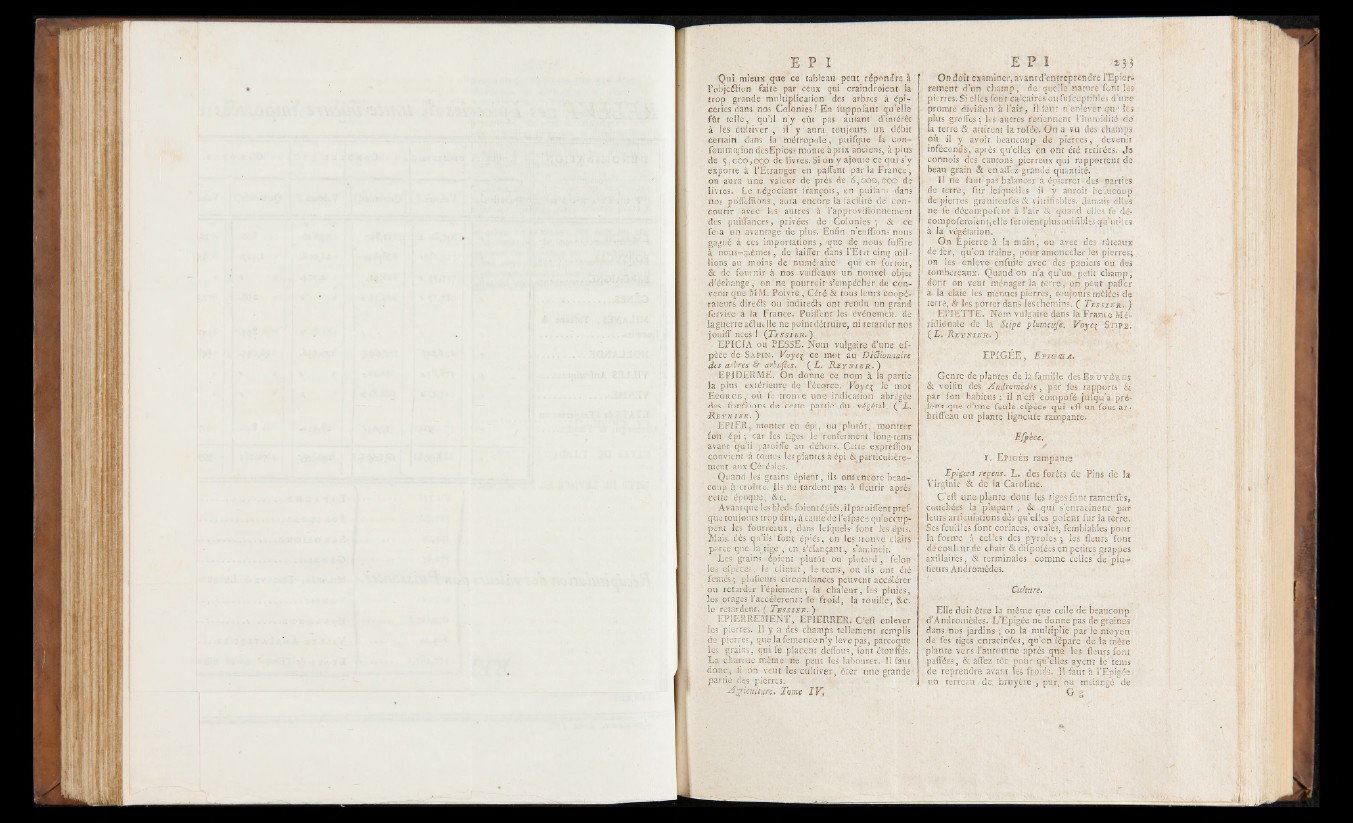 E P I
Qui mieux que ce tableau peut répondre à
l'objeétion faite par ceux qui craindroient la
trop grande multiplication des arbres à épi-
ceries dans nos Colonies! En suppofant qu'elle
fût telle, qu'il n'y eût pas autant d'intérêt
à les cultiver, il y aura toujours un débit
certain dans la métropole, puifque la con-
fommation des Epices monte à prix anciens, à plus
de livres. Si on y ajoute ce qui s'y
exporte à l'Etranger en paffant par la France,
on aura une valeur de près de 6,000,000 de
livres. Le négociant françois, en puifant dans
nos poffeffions, aura encore la facilité de con-
courir avec les autres à l'approvifionnement
des puiffances, privées de Colonies; & ce
fera un avantage de plus. Enfin n'euffions-nous
gagné à ces importations, que de nous fuffire
à nous-mêmes, de laiffer dans l'Etat cinq mil-
lions au moins de numéraire qui en fortoir,
& de fournir à nos vaiffeaux un nouvel objet
d'échange, on ne pourroit s'empêcher de con-
venir que MM. Poivre, Céré & tous leurs coopé-
rateurs direéts ou indireéts ont rendu un grand
fervice à la France. Puiffent les événemens de
la guerre aétuelle ne point détruire, ni retarder nos
jouiffances! (TESSIER.)
EPICIA ou PESSE. Nom vulgaire d'une ef-
pèce de SAPIN. Voyez ce mot au Diétionnaire
des arbres & arbuftes. (L. REYNIER.)
EPIDERME. On donne ce nom à la partie
la plus extérieure de l'écorce. Voyez le mot
ECORCE, où fe trouve une indication abrégée
des fonétions de cette partie du végétal. (L.
REYNIER.)
EPIER, monter en épi, ou plutôt, montrer
fon épi; car les tiges le renferment long-tems
avant qu'il paroiffe au dehors. Cette expreffion
convient à toutes les plantes à épi & particulière-
ment aux Céréales.
Quand les grains épient, ils ont encore beau-
coup à croître. Ils ne tardent pas à fleurir après
cette époque, &c.
Avant que les bleds foient épiés, il paroiffent pref-
que toujours trop dru, à caufe de l'efpace qu'occup-
pent les fourreaux, dans lefquels font les épis.
Mais dès qu'ils font épiés, on les trouve clairs
parce que la tige, en s'élançant, s'amincit.
Les grains épient plutôt ou plutard, felon
les efpèces, le climat, le tems, où ils ont été
femés; plufieurs circonftances peuvent accélérer
ou retarder l'épiement; la chaleur, les pluies,
les orages l'accélèrent: le froid, la rouille, &c.
le retardent. (TESSIER.)
EPIERREMENT, EPIERRER. C'eft enlever
les pierres. Il y a des champs tellement remplis
de pierres, que la femence n'y leve pas, parceque
les grains, qui fe placent deffous, font étouffés.
La charrue même ne peut les labourer. Il faut
donc, fi on veut les cultiver, ôter une grande
partie des pierres.
Agriculture. Tome IV.
E P I 233
On doit examiner, avant d'entreprendre l'Epier-
rement d'un champ, de quelle nature font les
pierres. Si elles font calcaires ou fufceptibles d'une
prompte divifion à l'air, il faut n'enlever que les
plus groffes; les autres retiennent l'humidité de
la terre & attirent la rofée. On a vu des champs
où il y avoit beaucoup de pierres, devenir
inféconds, après qu'elles en ont été retirées. Je
connois des cantons pierreux qui rapportent de
beau grain & en affez grande quantité.
Il ne faut pas balancer à épierrer des parties
de terre, fur lefquelles il y auroit beaucoup
de pierres graniteufes & vitrifiables. Jamais elles
ne fe décompofent à l'air & quand elles fe dé-
compoferoient, elle feroient plus nuifibles qu'utiles
à la végétation.
On Epierre à la main, ou avec des râteaux
de fer, qu'on traîne, pour amonceler les pierres;
on les enlève enfuite avec des paniers ou des
tombereaux. Quand on n'a qu'un petit champ,
dont on veut ménager la terre, on peut paffer
à la claie les menues pierres, toujours mêlées de
terre, & les porter dans les chemins. (TESSIER.)
EPIETTE. Nom vulgaire dans la France Mé-
ridionale de la Stipe plumeufe. Voyez STIPE.
(L. REYNIER.)
EPIGÉE, EPIGÆA.
Genre de plantes de la famille des BRUYERES
& voifin des Andromèdes, par fes rapports &
par fon habitus; il n'eft compofé jufqu'à pré-
fent que d'une feule efpèce qui eft un fous ar-
briffeau ou plante ligneufe rampante.
Efpèce.
1. EPIGÉE rampante
Epigæa repens. L. des forêts de Pins de la
Virginie & de la Caroline.
C'eft une plante dont les tiges font rameufes,
couchées la plupart, & qui s'enracinent par
leurs articulations dès qu'elles pofent fur la terre.
Ses feuilles font coriaces, ovales, femblables pour
la forme à celles des pyroles; les fleurs font
de couleur de chair & difpofées en petites grappes
axillaires, & terminales comme celles de plu-
fieurs Andromèdes.
Culture.
Elle doit être la même que celle de beaucoup
d'Andromèdes. L'Epigée ne donne pas de graines
dans nos jardins; on la multiplie par le moyen
de fes tiges enracinées, qu'on fépare de la mère
plante vers l'automne après que les fleurs font
paffées, & affez tôt pour qu'elles ayent le tems
de reprendre avant les froids. Il faut à l'Epigée
un terreau de bruyère, pur, ou mélangé de
G g